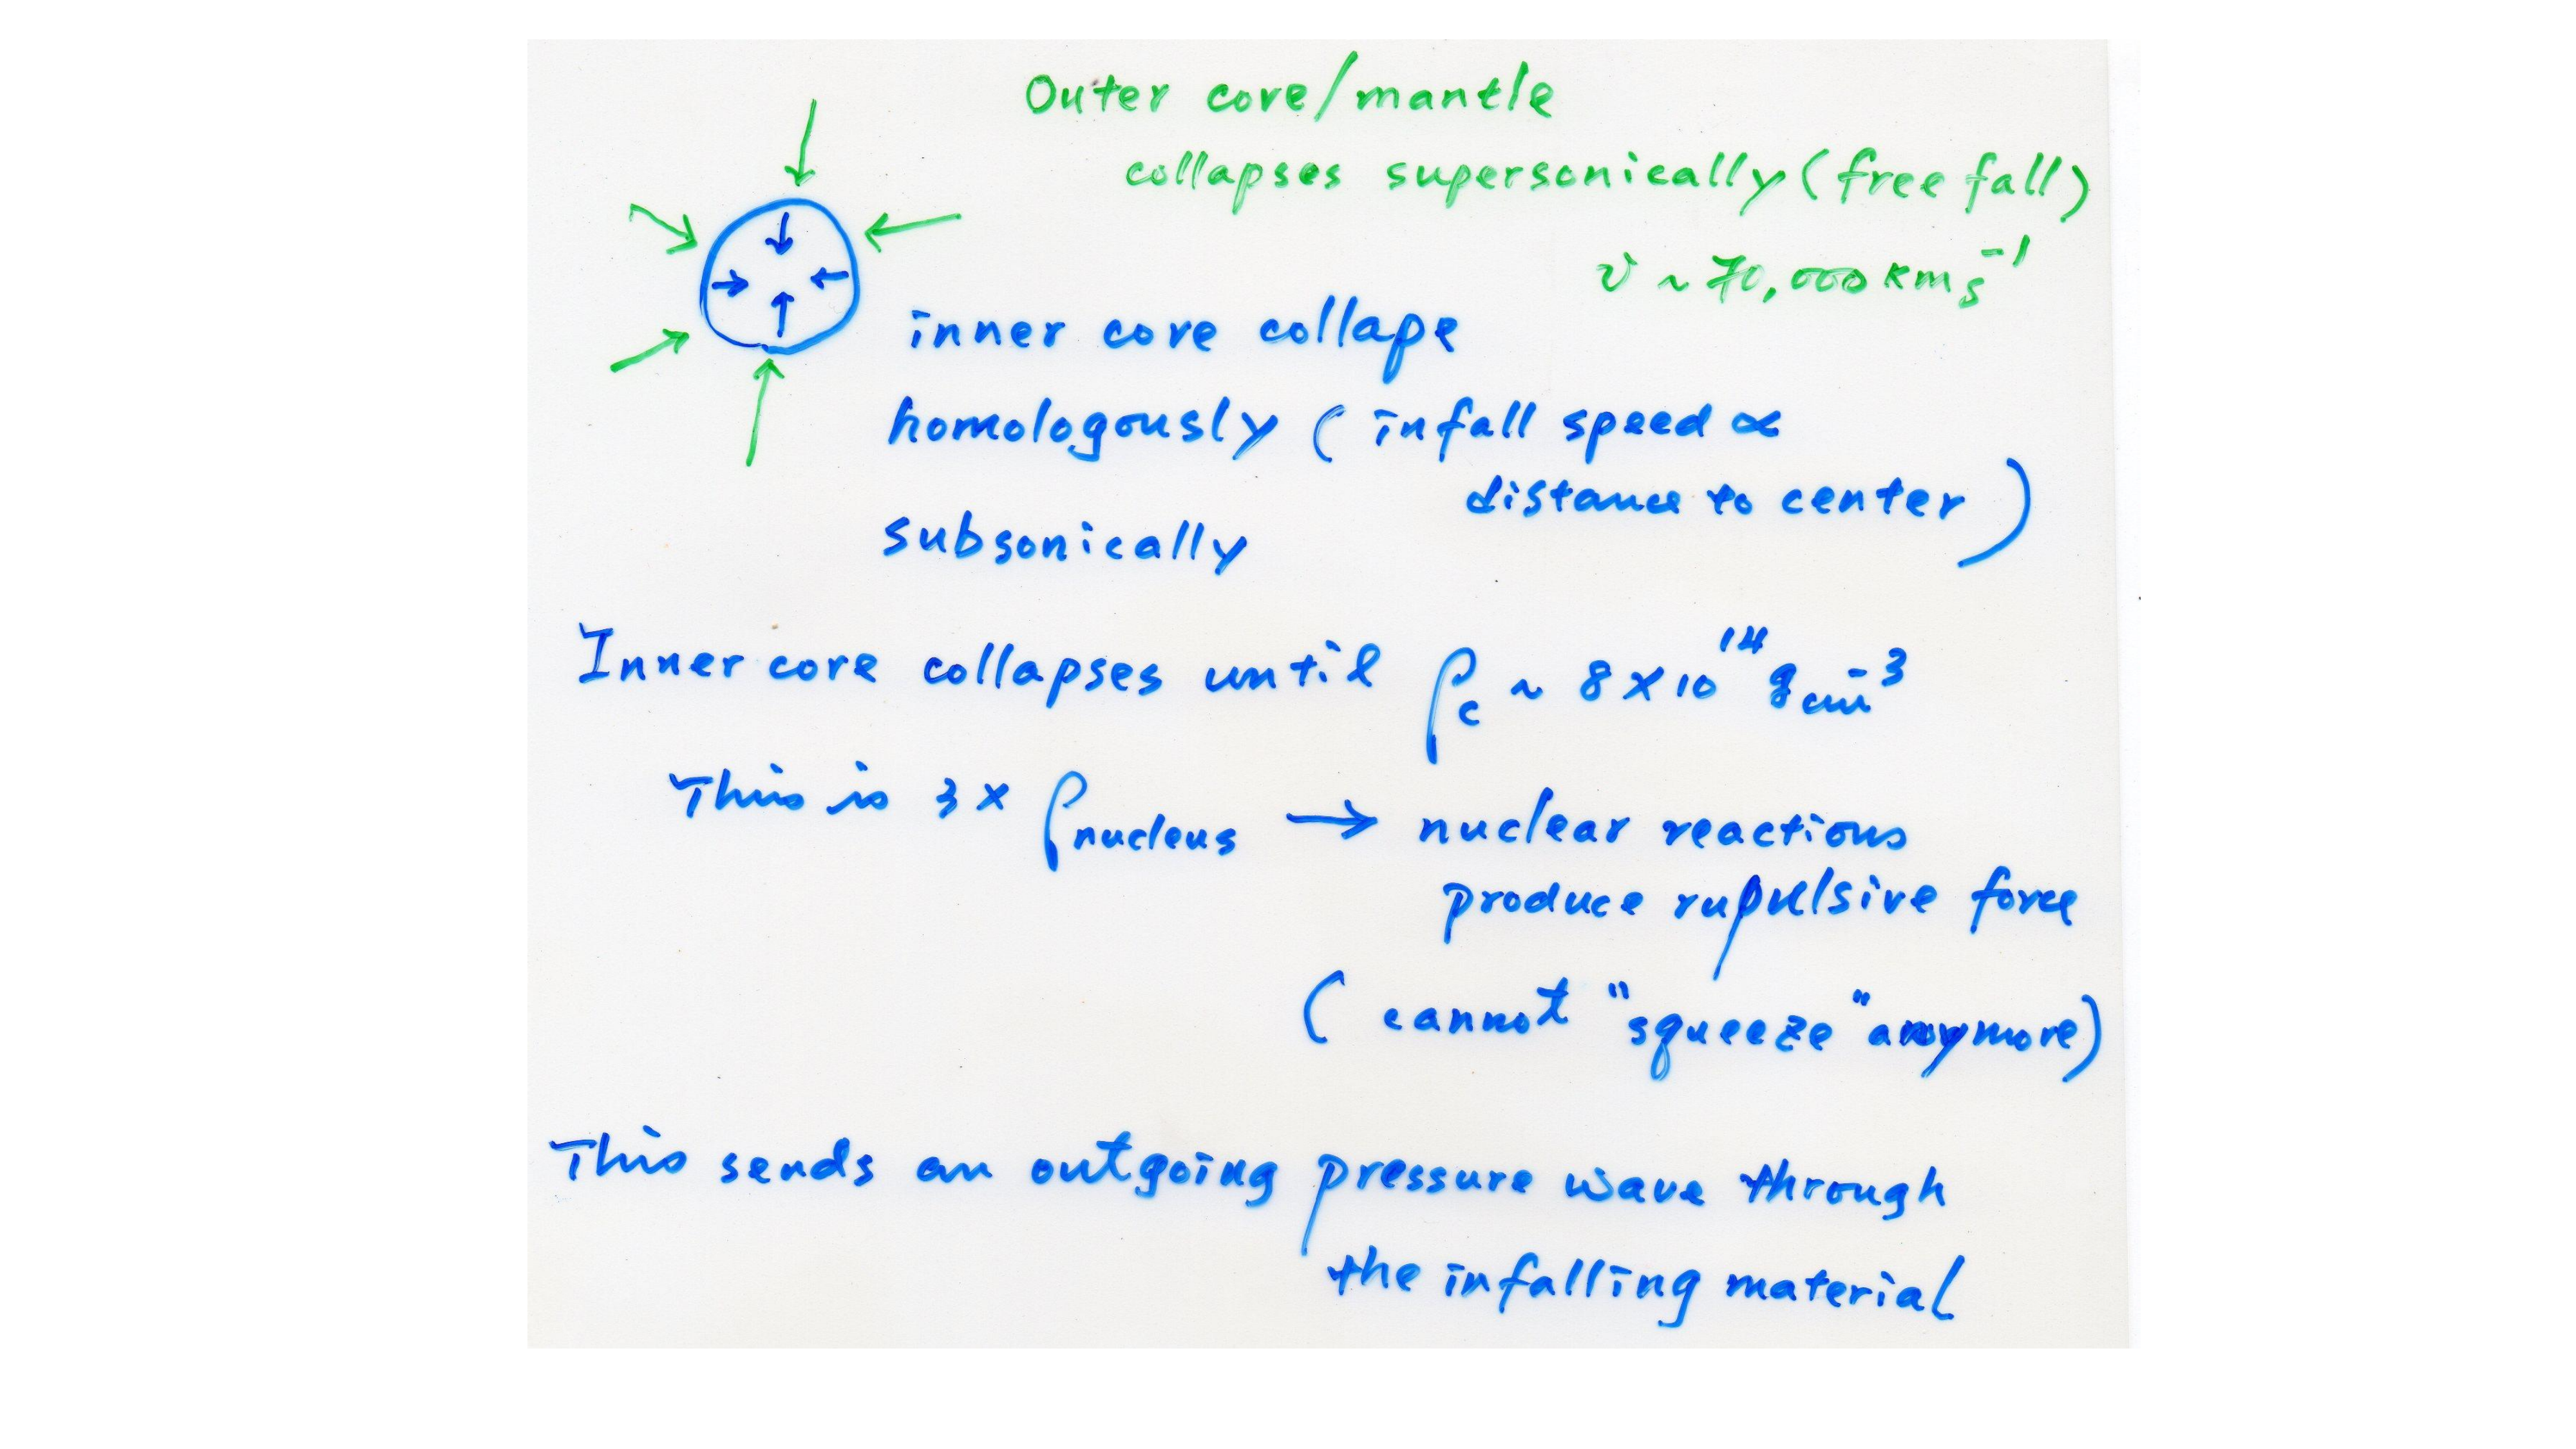 Outer core/mantle
collapses supersonically (free fall)
v ~ 70,000 km s⁻¹
inner core collape
homologously (infall speed ∝
distance to center)
subsonically
Inner core collapses until ρc ~ 8 × 10¹⁴ g cm⁻³
This is 3 × ρnucleus → nuclear reactions
produce rupulsive force
(cannot "squeeze" anymore)
This sends an outgoing pressure wave through
the infalling material